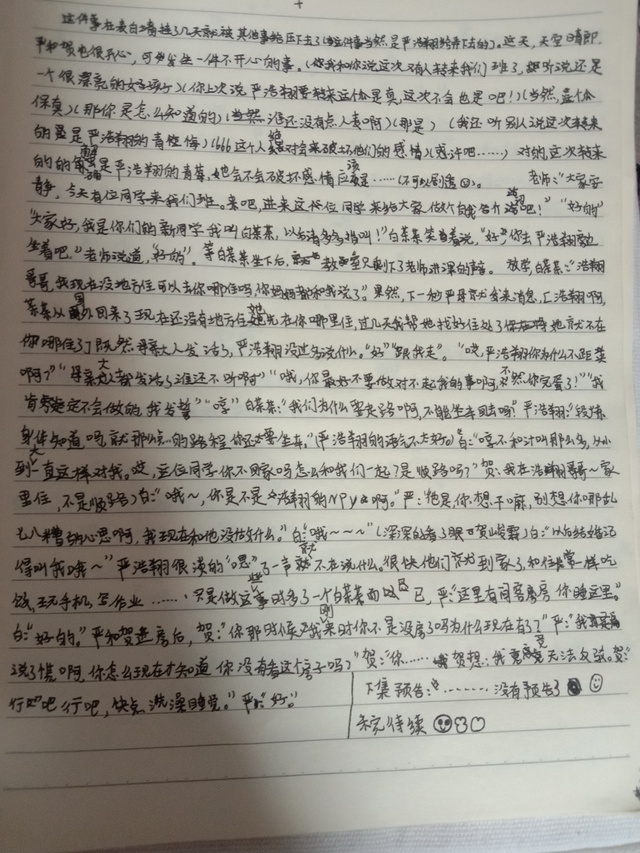 这件事在表白墙挂了几天就被其他事给压下去了(这件事当然是严浩翔给弄下去的)。这天,天空晴朗.
严和贺也很开心,可发生一件不开心的事。(你我和你说这次又有人转来我们班了,听说还是
一个很漂亮的女孩子)(你上次说严浩翔要转来这个是真,这次不会也是吧!)(当然,盖个
保真)(那你是怎么知道的)(当然,谁还没有点人麦啊)(那是)(我还听别人说这次转来
的是严浩翔的青梅)(666这个人绝对会来破坏他们的感情)(或许吧……)对的,这次转来
的的确是严浩翔的青莓,她会不会破坏感情应该是……(不可以剧透)。老师:“大家安
静,今天有位同学来我们班。来吧,进来这位同学来给大家做个自我介绍吧!”“好的”
“大家好,我是你们的新同学我叫白茶茶,以后请多多指叫!”白茶茶笑着说,“好”你去严浩翔旁边
坐着吧。”老师说道,“好的”。等白茶茶坐下后,教室只剩下了老师讲课的声音。放学,白茶茶:“浩翔
哥哥,我现在没地方住可以去你哪住吗,你妈妈都和我说了。”果然,下一秒严母就发来消息,[浩翔啊,
茶茶从国外回来了现在还没有地方住她先在你哪里住,过几天我帮她找好住处了她就不在
你哪住了]既然母亲大人发话了,严浩翔没过多说什么。“好”“跟我走”。“哎,严浩翔你为什么不距莫
啊?”“母亲大人都发话了谁还不听啊”“哦,你最好不要做对不起我的事啊,不然你完蛋了!”“我
肯定不会做的,我发誓”“哼”白茶茶:“我们为什么要走路啊,不能坐车回去吗?严浩翔:“锻炼
身体知道吗,就那么点的路程你还要坐车,”(严浩翔的语气不太好)白:“哼不和计叫那么多,从小
到大一直这样对我。哎,这位同学你不回家吗怎么和我们一起?是顺路吗?”贺:我在浩翔哥哥~家
里住,不是顺路)白:“哦~,你是不是浩翔的NPy啊。”严:“他是,你想干嘛,别想你那乱
七八糟的心思啊,我现在和他没做什么。”白:“哦~~~”(深深的看了眼贺峻霖)白:“以后结婚记
得叫我哦~”严浩翔很淡的“嗯”了一声就不在说什么。很快他们就到家了,和往常一样吃
饭,玩手机,写作业……只是做这些事时多了一个白茶茶而以已,严:“这里有间客房,你睡这里。”
白:“好的。”严和贺进房后,贺:“你那时候我刚来时你不是没房了吗为什么现在有了”严:“我
说了慌啊,你怎么现在才知道你没有看这个房子吗?”贺:“你……贺想:我竟无法反驳。贺:“
行吧行吧,快点洗澡睡觉。”严:“好。”
下集预告:“………没有预告了
未完待续